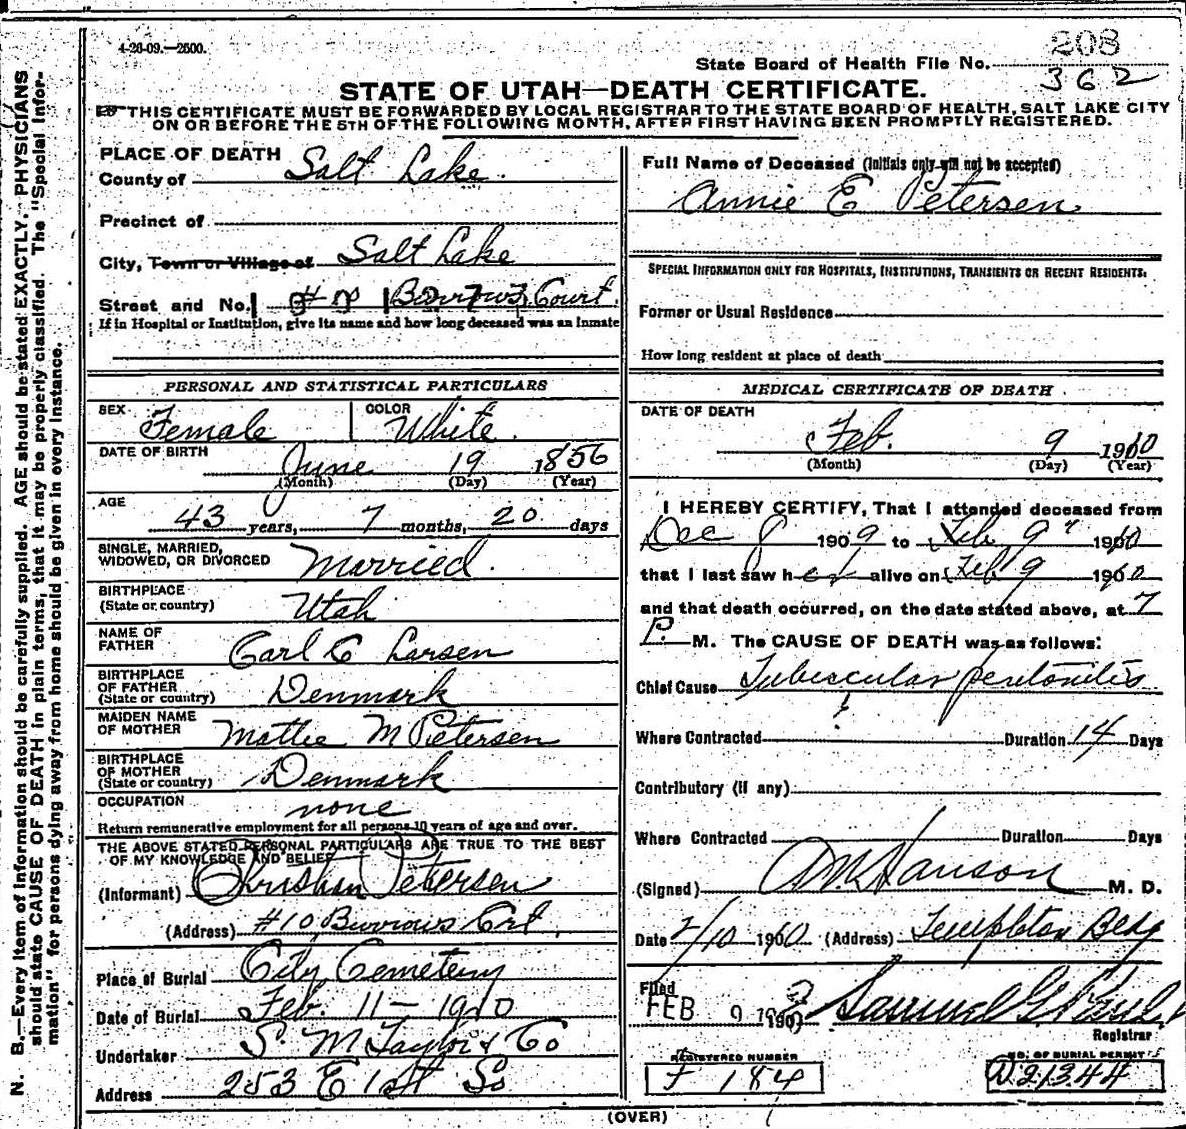 4-26-09.—2500.
208
State Board of Health File No. 362
STATE OF UTAH—DEATH CERTIFICATE.
THIS CERTIFICATE MUST BE FORWARDED BY LOCAL REGISTRAR TO THE STATE BOARD OF HEALTH, SALT LAKE CITY
ON OR BEFORE THE 5TH OF THE FOLLOWING MONTH, AFTER FIRST HAVING BEEN PROMPTLY REGISTERED.
N. B.—Every item of information should be carefully supplied. AGE should be stated EXACTLY. PHYSICIANS
should state CAUSE OF DEATH in plain terms, that it may be properly classified. The "Special Infor-
mation" for persons dying away from home should be given in every instance.
PLACE OF DEATH
County of Salt Lake.
Precinct of
City, Town or Village of Salt Lake
Street and No. Burrows Court.
If in Hospital or Institution, give its name and how long deceased was an inmate
PERSONAL AND STATISTICAL PARTICULARS
SEX Female COLOR White.
DATE OF BIRTH June 19 1856
(Month) (Day) (Year)
AGE
43 years, 7 months, 20 days
SINGLE, MARRIED,
WIDOWED, OR DIVORCED Married.
BIRTHPLACE
(State or country) Utah
NAME OF
FATHER Carl C Larsen
BIRTHPLACE
OF FATHER
(State or country) Denmark
MAIDEN NAME
OF MOTHER Mattie M Petersen
BIRTHPLACE
OF MOTHER
(State or country) Denmark
OCCUPATION none
Return remunerative employment for all persons 10 years of age and over.
THE ABOVE STATED PERSONAL PARTICULARS ARE TRUE TO THE BEST
OF MY KNOWLEDGE AND BELIEF
(Informant) Christian Petersen
(Address) #10 Burrows Crt.
Place of Burial City Cemetery
Date of Burial Feb. 11 - 1910
Undertaker S. M Taylor & Co
Address 253 E 1st So
Full Name of Deceased (Initials only will not be accepted)
Annie E Petersen
SPECIAL INFORMATION ONLY FOR HOSPITALS, INSTITUTIONS, TRANSIENTS OR RECENT RESIDENTS:
Former or Usual Residence
How long resident at place of death
MEDICAL CERTIFICATE OF DEATH
DATE OF DEATH
Feb. 9 1910
(Month) (Day) (Year)
I HEREBY CERTIFY, That I attended deceased from
Dec 8 1909 to Feb 9" 1910
that I last saw her alive on Feb 9 1910
and that death occurred, on the date stated above, at 7
P. M. The CAUSE OF DEATH was as follows:
Chief Cause Tubercular peritonitis
Where Contracted Duration 14 Days
Contributory (if any)
Where Contracted Duration Days
(Signed) Hanson M. D.
Date 2/10 1910 (Address) Templeton Bldg
Filed
FEB 9 Samuel G Paul
Registrar
REGISTERED NUMBER
F 184
NO. OF BURIAL PERMIT
A21344
(OVER)